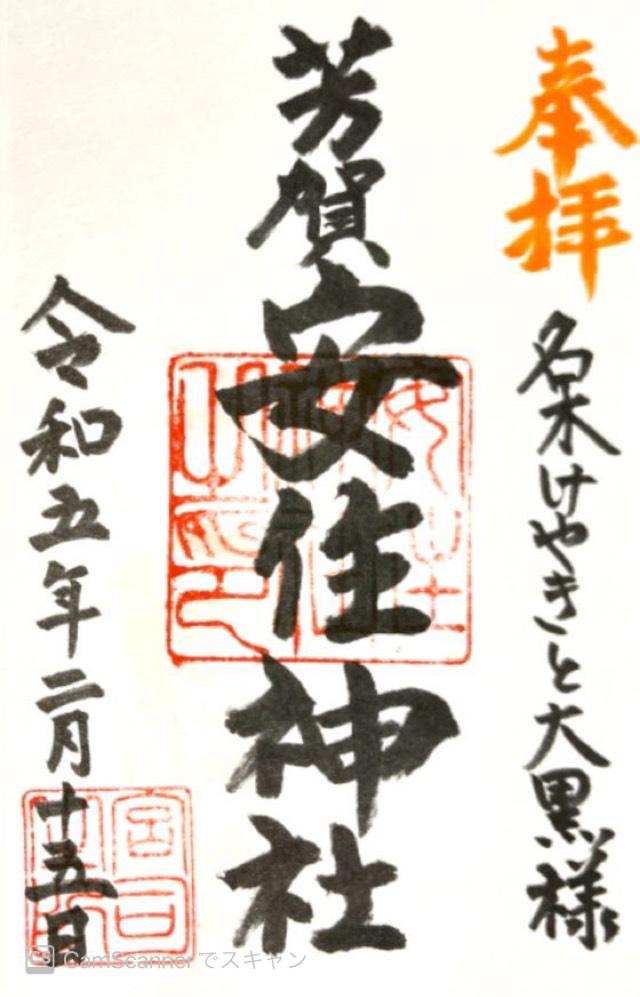 奉拝
名木けやきと大黒様
芳賀安住神社
令和五年二月十五日
CamScannerでスキャン